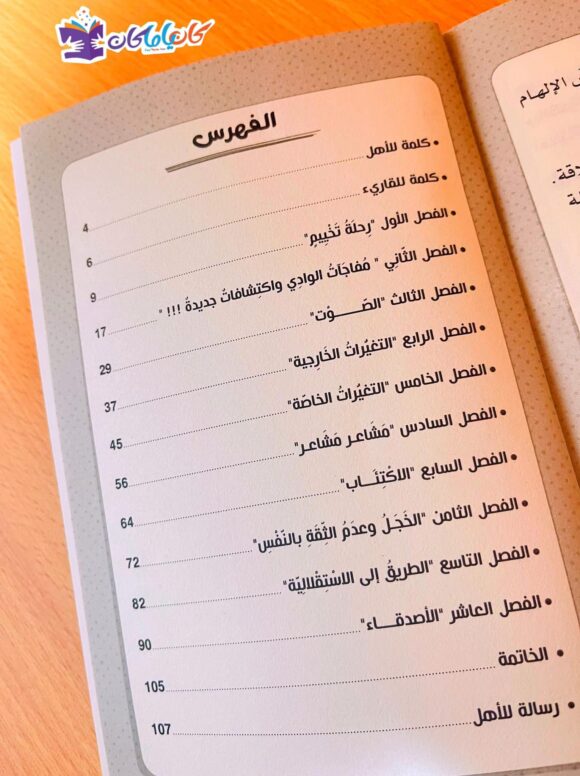 كان ياما كان
الفهرس
• كلمة للأهل 4
• كلمة للقاريء 6
• الفصل الأول "رِحلَةُ تَخْيِيمٍ" 9
• الفصل الثّانِي " مُفاجَآتُ الوادِي واكتِشافاتٌ جديدةٌ !!! " 17
• الفصل الثالث "الصَّـــــوْت" 29
• الفصل الرابع "التغيُراتُ الخَارِجية" 37
• الفصل الخامس "التغيُراتُ الخاصّة" 45
• الفصل السادس "مَشَاعر مَشَاعر" 56
• الفصل السابع "الاكْتِئَـــاب" 64
• الفصل الثامن "الخَجَلُ وعدَمُ الثِّقَةِ بالنَّفْسِ" 72
• الفصل التاسع "الطريقُ إلى الاسْتِقْلالِيّة" 82
• الفصل العاشر "الأصدقـــاء" 90
• الخاتمة 105
• رسالة للأهل 107
الإلهام